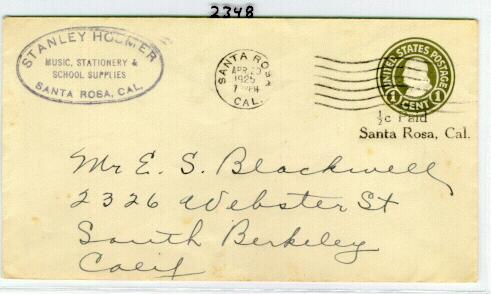 2348
STANLEY HOOMER
MUSIC, STATIONERY &
SCHOOL SUPPLIES
SANTA ROSA, CAL.
SANTA ROSA
APR 20
1925
CAL.
UNITED STATES POSTAGE
1 CENT 1
½c Paid
Santa Rosa, Cal.
Mr E. S. Blackwell
2326 Webster St
South Berkeley
Calif